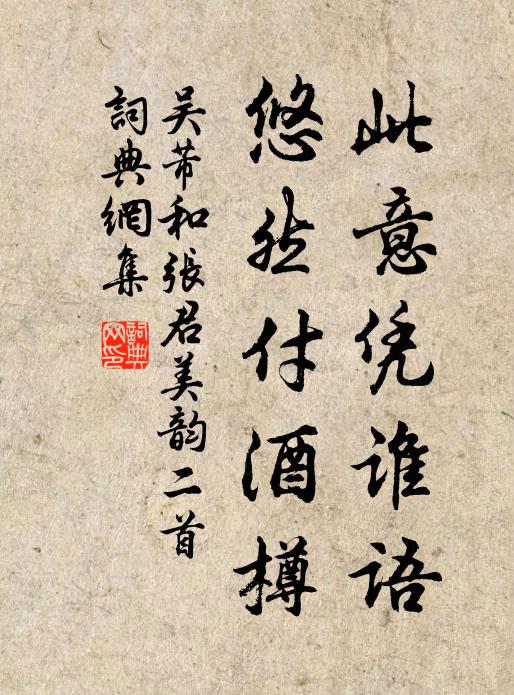 此意凭谁语
悠然付酒樽
吴芾和张君美韵二首
詞典網集
詞典网印